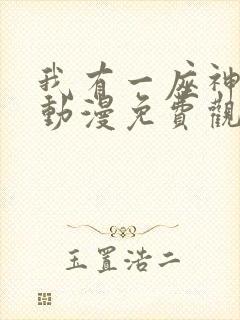 我有一座神
動漫免費觀
玉置浩二